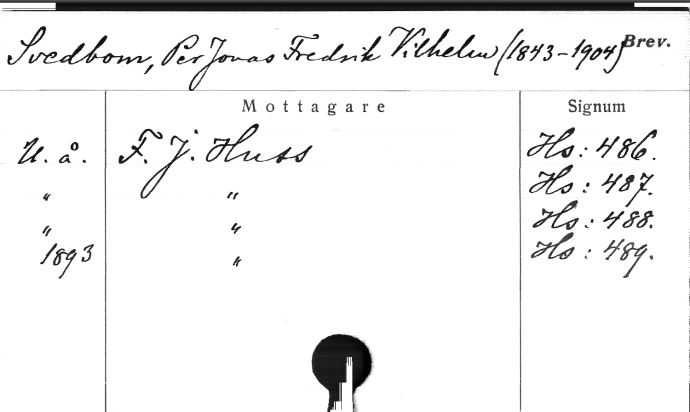 Svedbom, Per Jonas Fredrik Vilhelm (1843-1904) Brev.
Mottagare Signum
U. å. F. J. Huss Hs: 486.
" " Hs: 487.
" " Hs: 488.
1893 " Hs: 489.